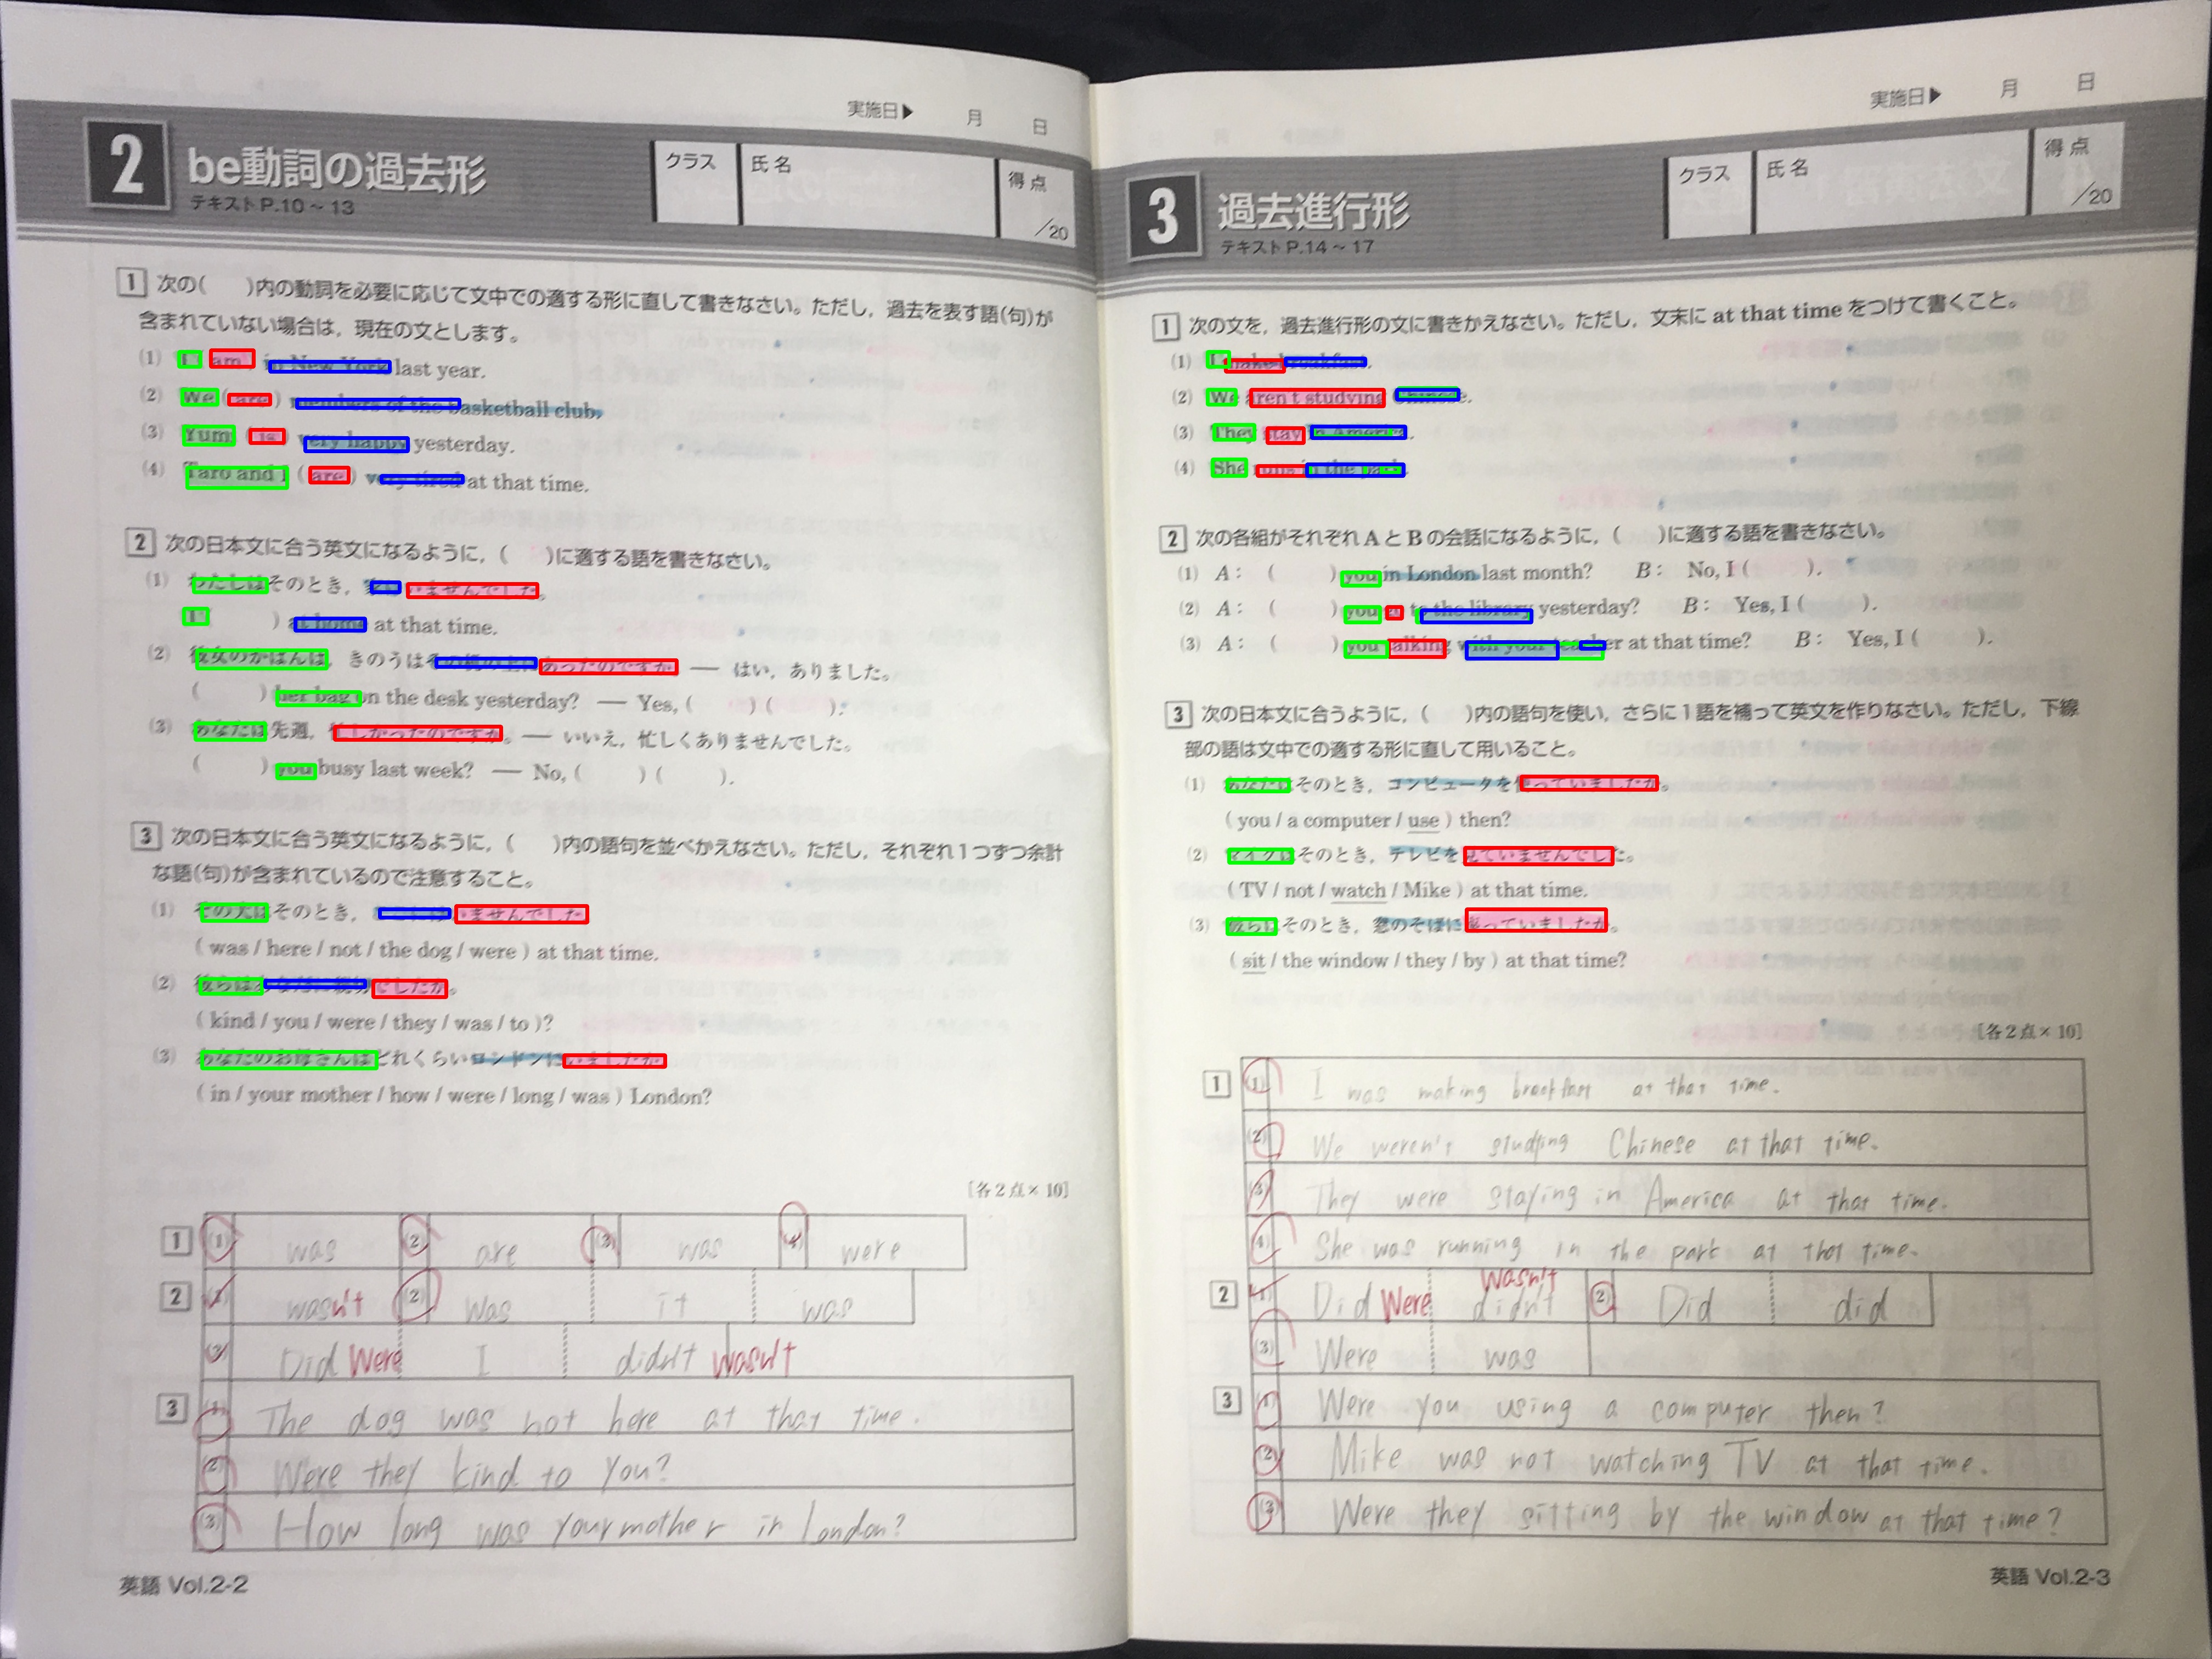 実施日▶ 月 日
2 be動詞の過去形
テキストP.10～13
クラス 氏名 得点 /20
1 次の( )内の動詞を必要に応じて文中での適する形に直して書きなさい。ただし，過去を表す語(句)が
含まれていない場合は，現在の文とします。
(1) I (am) in New York last year.
(2) We (are) members of the basketball club.
(3) Yumi (is) very happy yesterday.
(4) Taro and I (are) very tired at that time.
2 次の日本文に合う英文になるように，( )に適する語を書きなさい。
(1) わたしはそのとき，家にいませんでした。
I ( ) at home at that time.
(2) 彼女のかばんは，きのうはその机の上にあったのですか。— はい，ありました。
( ) her bag on the desk yesterday? — Yes, ( ) ( ).
(3) あなたは先週，忙しかったのですか。— いいえ，忙しくありませんでした。
( ) you busy last week? — No, ( ) ( ).
3 次の日本文に合う英文になるように，( )内の語句を並べかえなさい。ただし，それぞれ1つずつ余計
な語(句)が含まれているので注意すること。
(1) その犬はそのとき，ここにはいませんでした
( was / here / not / the dog / were ) at that time.
(2) 彼らはあなたに親切でしたか。
( kind / you / were / they / was / to )?
(3) あなたのお母さんはどれくらいロンドンにいましたか
( in / your mother / how / were / long / was ) London?
[各2点×10]
1 (1) was (2) are (3) was (4) were
2 (1) wasn't (2) Was it was
(3) Did Were I didn't wasn't
3 (1) The dog was not here at that time.
(2) Were they kind to you?
(3) How long was your mother in London?
英語 Vol.2-2
実施日▶ 月 日
3 過去進行形
テキストP.14～17
クラス 氏名 得点 /20
1 次の文を，過去進行形の文に書きかえなさい。ただし，文末に at that time をつけて書くこと。
(1) I make breakfast.
(2) We aren't studying Chinese.
(3) They stay in America.
(4) She runs in the park.
2 次の各組がそれぞれAとBの会話になるように，( )に適する語を書きなさい。
(1) A: ( ) you in London last month? B: No, I ( ).
(2) A: ( ) you go to the library yesterday? B: Yes, I ( ).
(3) A: ( ) you talking with your teacher at that time? B: Yes, I ( ).
3 次の日本文に合うように，( )内の語句を使い，さらに1語を補って英文を作りなさい。ただし，下線
部の語は文中での適する形に直して用いること。
(1) あなたはそのとき，コンピュータを使っていましたか。
( you / a computer / use ) then?
(2) マイクはそのとき，テレビを見ていませんでした。
( TV / not / watch / Mike ) at that time.
(3) 彼らはそのとき，窓のそばに座っていましたか。
( sit / the window / they / by ) at that time?
[各2点×10]
1 (1) I was making breakfast at that time.
(2) We weren't studying Chinese at that time.
(3) They were staying in America at that time.
(4) She was running in the park at that time.
2 (1) Did Were didn't wasn't (2) Did did
(3) Were was
3 (1) Were you using a computer then?
(2) Mike was not watching TV at that time.
(3) Were they sitting by the window at that time?
英語 Vol.2-3